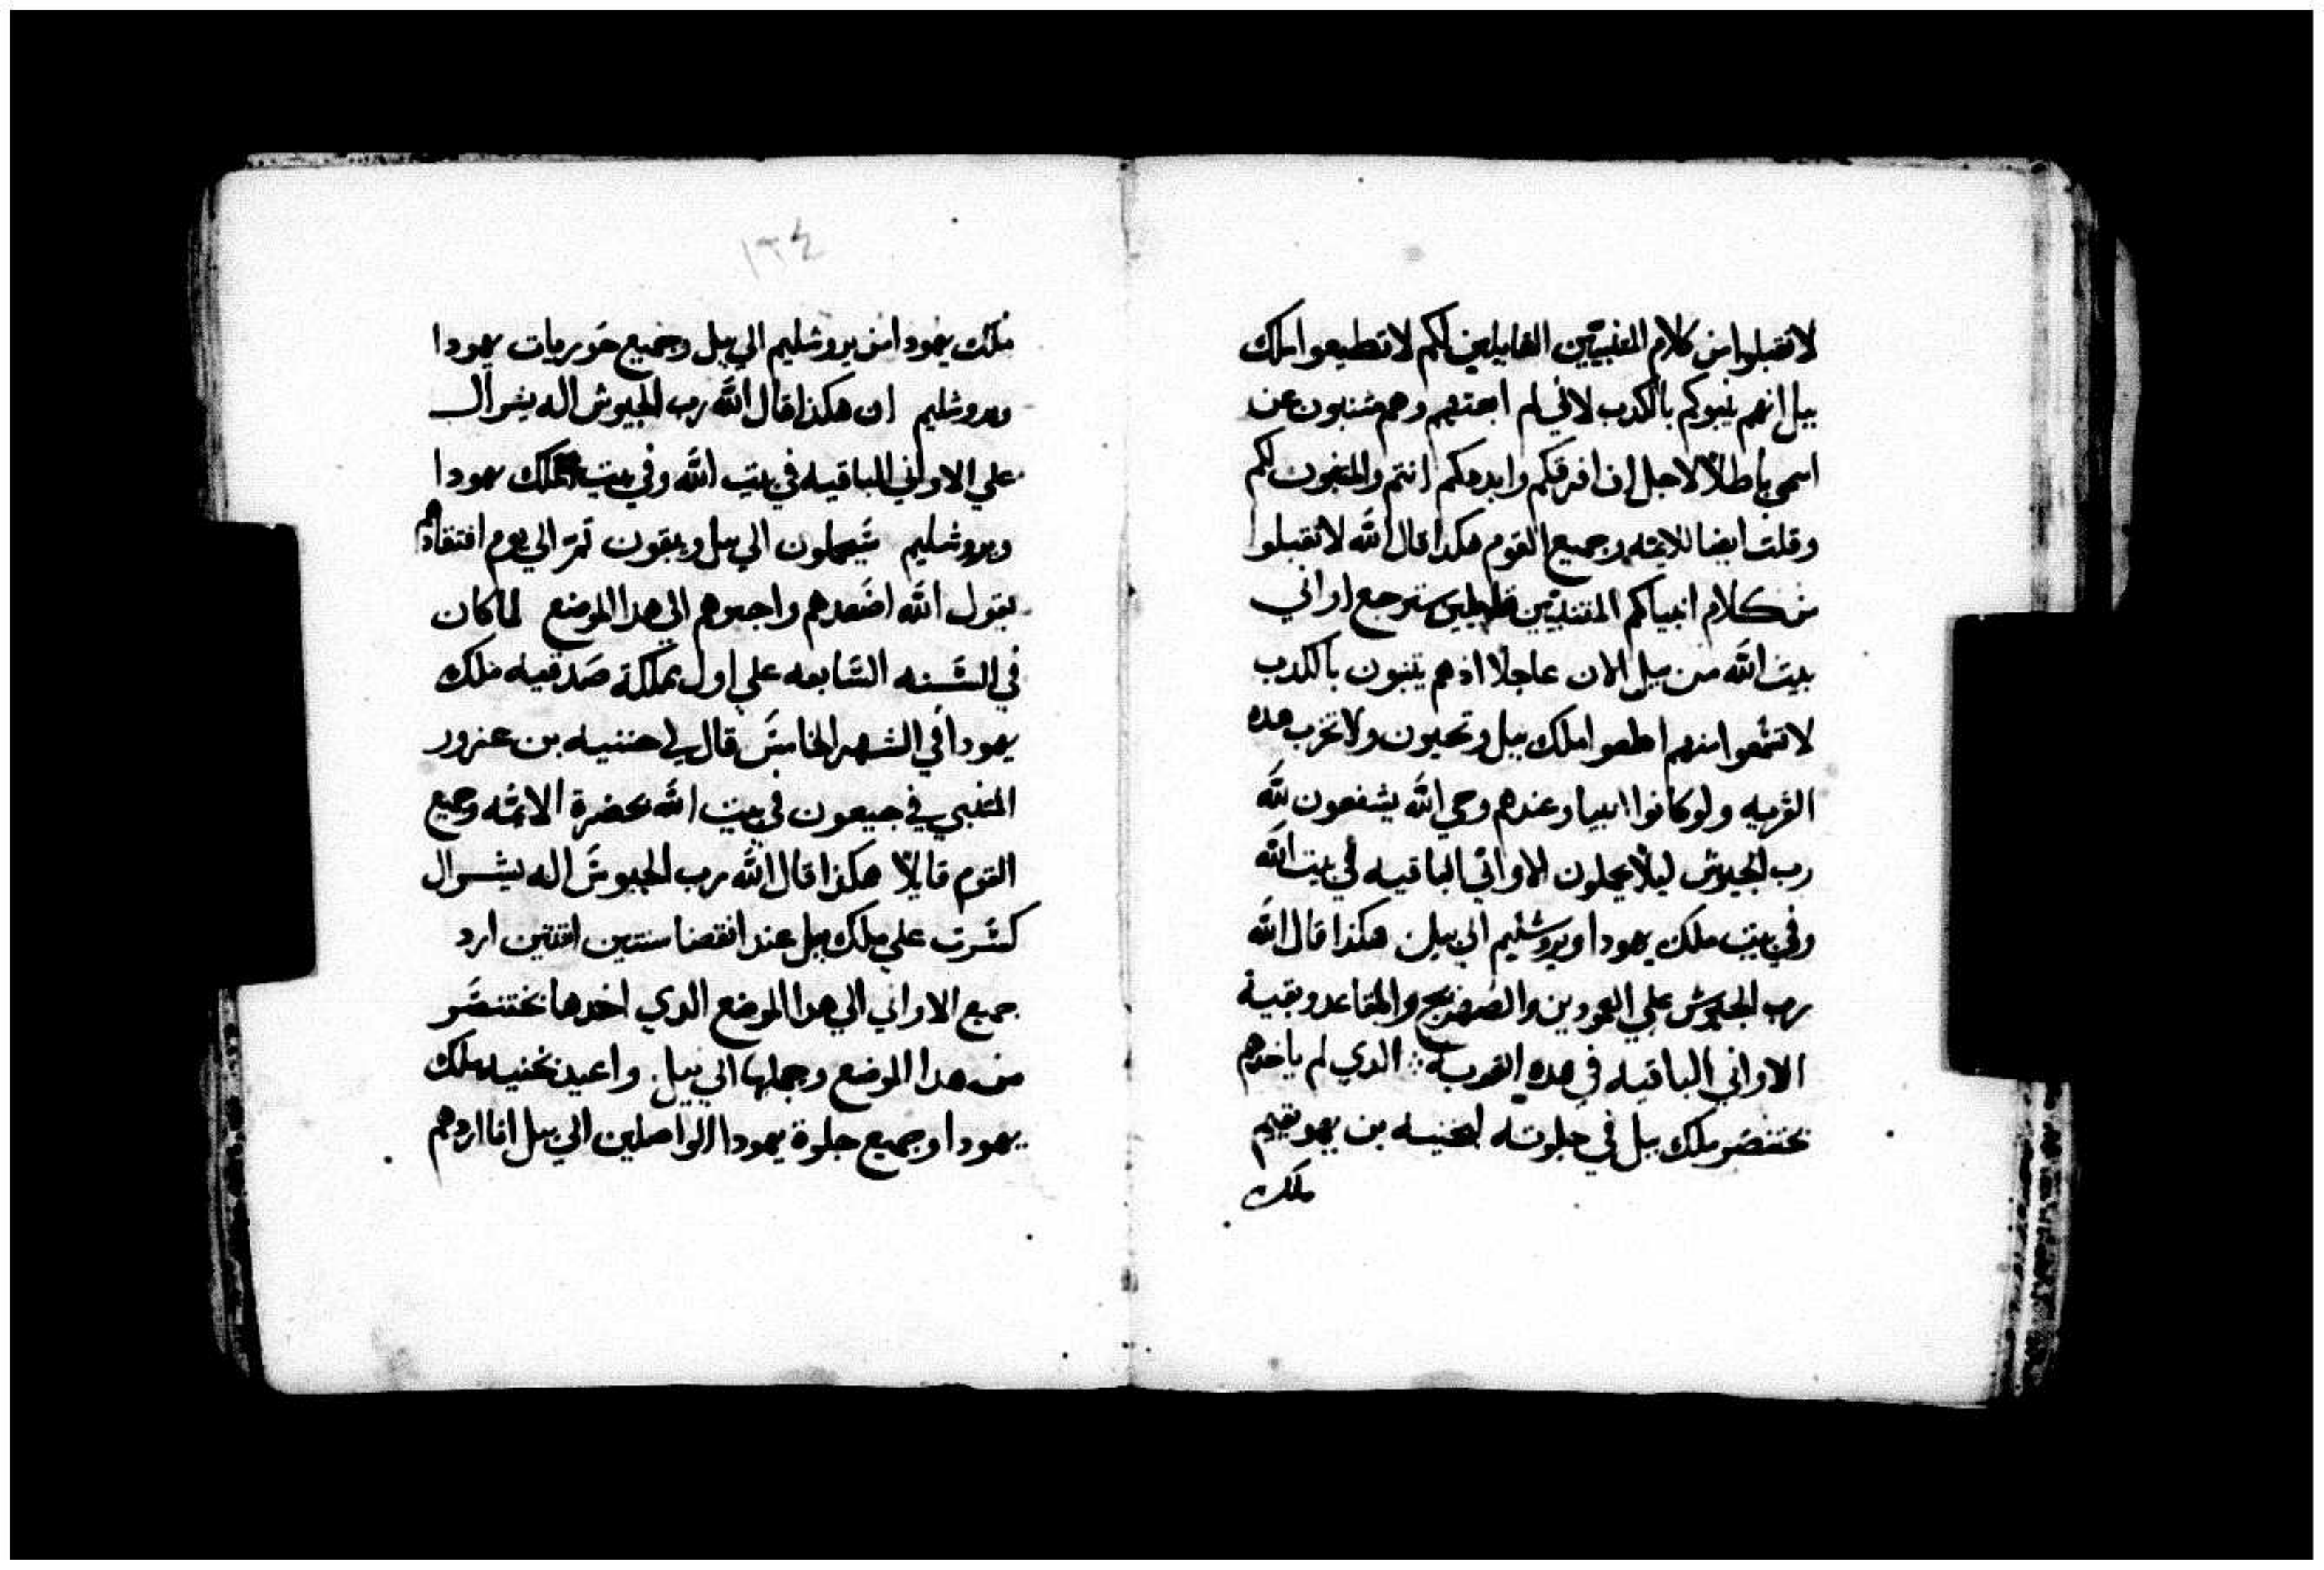 لا تقبلوا من كلام المتنبيين القايلين لكم لا تطيعوا ملك
ببل انهم يتنبوكم بالكدب لاني لم ابعثهم وهم متنبون عن
اسمي باطلاً لاجل ان افرقكم وابددكم انتم والمتنبون لكم
وقلت ايضا للايمه وجميع القوم هكدا قال الله لا تقبلوا
من كلام انبياكم المتنبيين قايلين سترجع اواني
بيت الله من ببل الان عاجلا اذ هم يتنبون بالكدب
لا تسمعوا منهم اطيعوا ملك ببل وتحيون ولا تخرب هده
القريه ولو كانوا انبيا وعندهم وحي الله يشفعون لله
رب الجيوش ليلا يحملون الاواني الباقيه في بيت الله
وفي بيت ملك يهودا ويروشليم الي ببل هكذا قال الله
رب الجيوش علي العمودين والصهريج والمقاعد وبقية
الاواني الباقيه في هده القريه الدي لم ياخدهم
بختنصر ملك ببل في جلوته ليخنيه بن يهويقيم
ملك
١٢٤
ملك يهودا من يروشليم الي ببل وجميع حوريات يهودا
ويروشليم ان هكذا قال الله رب الجيوش اله يسرال
علي الاواني الباقيه في بيت الله وفي بيت ملك يهودا
ويروشليم سيحملون الي ببل ويبقون ثمّ الي يوم افتقادهم
يقول الله اصعدهم واجيبهم الي هدا الموضع لما كان
في السنه السابعه علي اول مملكة صدقيه ملك
يهودا في الشهر الخامس قال لي حننيه بن عزور
المتنبي في جبعون في بيت الله بحضرة الايمه وجميع
القوم قايلا هكذا قال الله رب الجيوش اله يسرال
كسرت علي ملك ببل عند انقضا سنتين اثنتين ارد
جميع الاواني الي هدا الموضع الدي اخدها بختنصر
من هدا الموضع وحملها الي ببل واعيد يخنيه ملك
يهودا وجميع جلوة يهودا الواصلين الي ببل انا اردهم